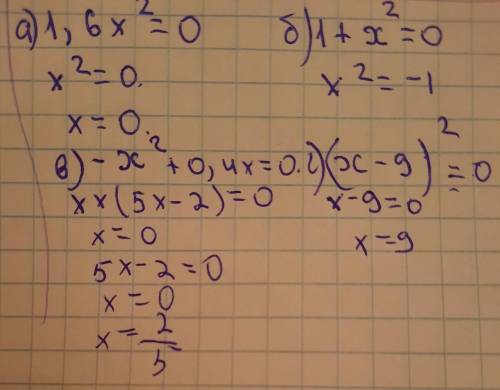 а) 1,6x² = 0
x² = 0.
x = 0.
б) 1 + x² = 0
x² = -1
в) -x² + 0,4x = 0.
x x (5x - 2) = 0
x = 0
5x - 2 = 0
x = 0
x = 2/5
г) (x - 9)² = 0
x - 9 = 0
x = 9